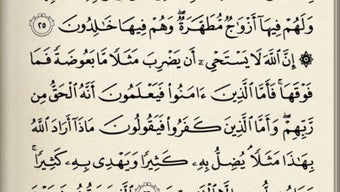 وَلَهُمْ فِيهَآ أَزْوَٰجٌ مُّطَهَّرَةٌ ۖ وَهُمْ فِيهَا خَٰلِدُونَ ﴿٢٥﴾
۞ إِنَّ ٱللَّهَ لَا يَسْتَحْىِۦٓ أَن يَضْرِبَ مَثَلًا مَّا بَعُوضَةً فَمَا
فَوْقَهَا ۚ فَأَمَّا ٱلَّذِينَ ءَامَنُوا۟ فَيَعْلَمُونَ أَنَّهُ ٱلْحَقُّ مِن
رَّبِّهِمْ ۖ وَأَمَّا ٱلَّذِينَ كَفَرُوا۟ فَيَقُولُونَ مَاذَآ أَرَادَ ٱللَّهُ
بِهَٰذَا مَثَلًا ۘ يُضِلُّ بِهِۦ كَثِيرًا وَيَهْدِى بِهِۦ كَثِيرًا ۚ